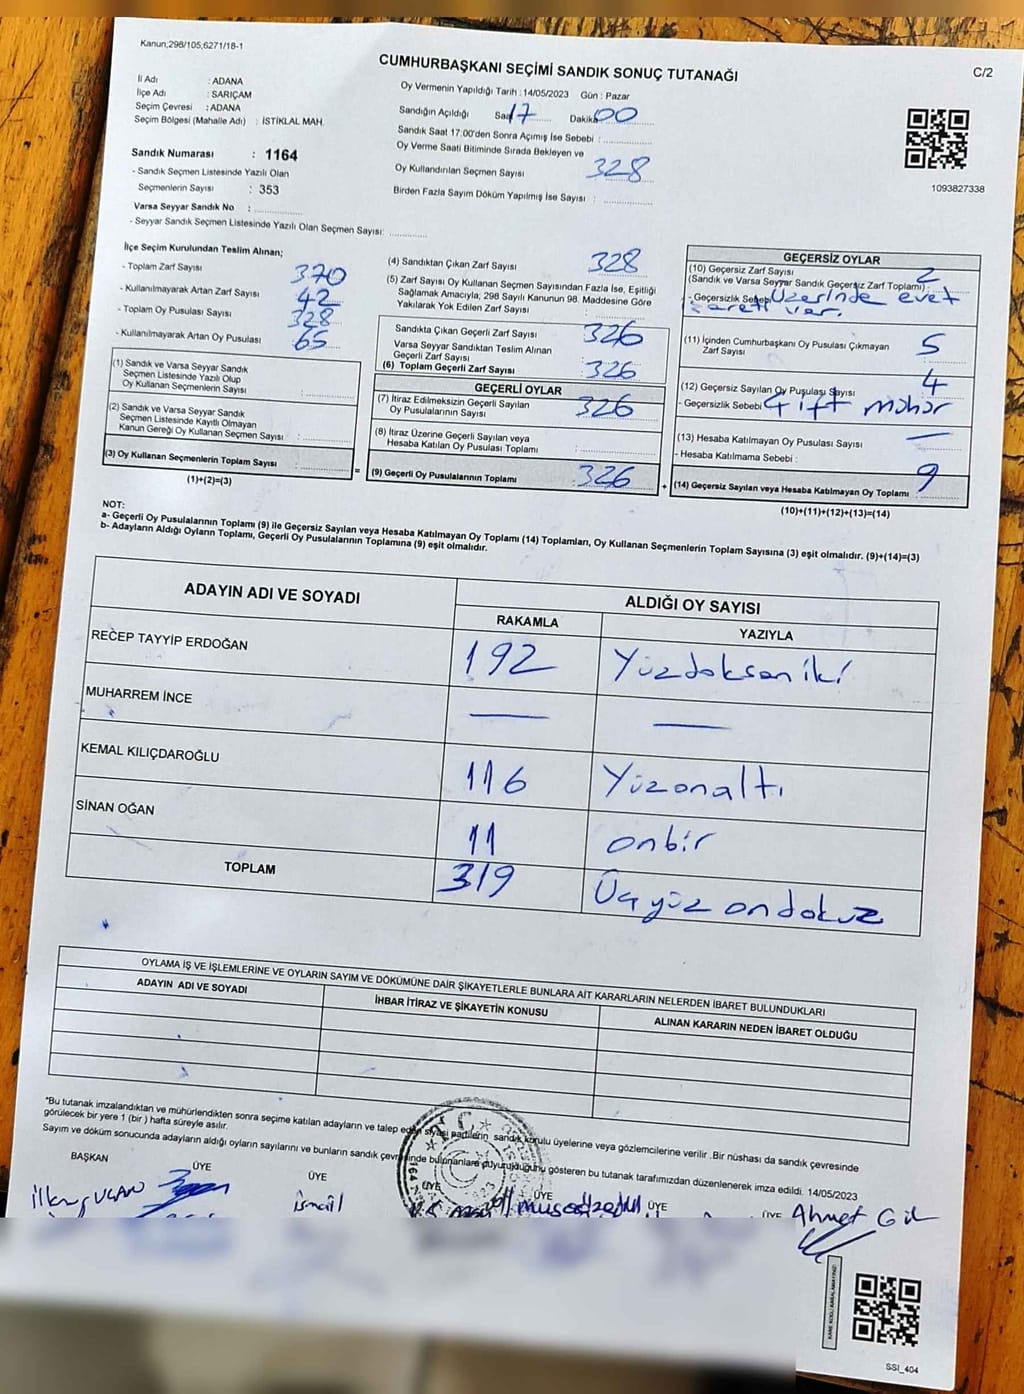 Kanun;298/105,6271/18-1
CUMHURBAŞKANI SEÇİMİ SANDIK SONUÇ TUTANAĞI
C/2
İl Adı : ADANA
İlçe Adı : SARIÇAM
Seçim Çevresi : ADANA
Seçim Bölgesi (Mahalle Adı) : İSTİKLAL MAH.
Sandık Numarası : 1164
- Sandık Seçmen Listesinde Yazılı Olan
Seçmenlerin Sayısı : 353
Varsa Seyyar Sandık No : ............
- Seyyar Sandık Seçmen Listesinde Yazılı Olan Seçmen Sayısı: ............
Oy Vermenin Yapıldığı Tarih : 14/05/2023 Gün : Pazar
Sandığın Açıldığı Saat 17 Dakika 00
Sandık Saat 17:00'den Sonra Açımış İse Sebebi : ............
Oy Verme Saati Bitiminde Sırada Bekleyen ve
Oy Kullandırılan Seçmen Sayısı 328
Birden Fazla Sayım Döküm Yapılmış İse Sayısı : ............
1093827338
İlçe Seçim Kurulundan Teslim Alınan;
- Toplam Zarf Sayısı 370
- Kullanılmayarak Artan Zarf Sayısı 42
- Toplam Oy Pusulası Sayısı 328
- Kullanılmayarak Artan Oy Pusulası 65
(1) Sandık ve Varsa Seyyar Sandık
Seçmen Listesinde Yazılı Olup
Oy Kullanan Seçmenlerin Sayısı : ............
(2) Sandık ve Varsa Seyyar Sandık
Seçmen Listesinde Kayıtlı Olmayan
Kanun Gereği Oy Kullanan Seçmen Sayısı : ............
(3) Oy Kullanan Seçmenlerin Toplam Sayısı : ............
(1)+(2)=(3)
=
(4) Sandıktan Çıkan Zarf Sayısı 328
(5) Zarf Sayısı Oy Kullanan Seçmen Sayısından Fazla İse, Eşitliği
Sağlamak Amacıyla; 298 Sayılı Kanunun 98. Maddesine Göre
Yakılarak Yok Edilen Zarf Sayısı : ............
Sandıkta Çıkan Geçerli Zarf Sayısı 326
Varsa Seyyar Sandıktan Teslim Alınan
Geçerli Zarf Sayısı
(6) Toplam Geçerli Zarf Sayısı 326
GEÇERLİ OYLAR
(7) İtiraz Edilmeksizin Geçerli Sayılan
Oy Pusulalarının Sayısı 326
(8) İtiraz Üzerine Geçerli Sayılan veya
Hesaba Katılan Oy Pusulası Toplamı : ............
(9) Geçerli Oy Pusulalarının Toplamı 326
+
GEÇERSİZ OYLAR
(10) Geçersiz Zarf Sayısı 2
(Sandık ve Varsa Seyyar Sandık Geçersiz Zarf Toplamı) :
- Geçersizlik Sebebi Üzerinde evet
işareti var.
(11) İçinden Cumhurbaşkanı Oy Pusulası Çıkmayan
Zarf Sayısı 5
(12) Geçersiz Sayılan Oy Pusulası Sayısı 4
- Geçersizlik Sebebi Çift mühür
(13) Hesaba Katılmayan Oy Pusulası Sayısı —
- Hesaba Katılmama Sebebi :
(14) Geçersiz Sayılan veya Hesaba Katılmayan Oy Toplamı 9
(10)+(11)+(12)+(13)=(14)
NOT:
a- Geçerli Oy Pusulalarının Toplamı (9) ile Geçersiz Sayılan veya Hesaba Katılmayan Oy Toplamı (14) Toplamları, Oy Kullanan Seçmenlerin Toplam Sayısına (3) eşit olmalıdır. (9)+(14)=(3)
b- Adayların Aldığı Oyların Toplamı, Geçerli Oy Pusulalarının Toplamına (9) eşit olmalıdır.
ADAYIN ADI VE SOYADI
ALDIĞI OY SAYISI
RAKAMLA YAZIYLA
RECEP TAYYİP ERDOĞAN 192 Yüzdoksaniki
MUHARREM İNCE — —
KEMAL KILIÇDAROĞLU 116 Yüzonaltı
SİNAN OĞAN 11 onbir
TOPLAM 319 Üçyüz ondokuz
OYLAMA İŞ VE İŞLEMLERİNE VE OYLARIN SAYIM VE DÖKÜMÜNE DAİR ŞİKAYETLERLE BUNLARA AİT KARARLARIN NELERDEN İBARET BULUNDUKLARI
ADAYIN ADI VE SOYADI İHBAR İTİRAZ VE ŞİKAYETİN KONUSU ALINAN KARARIN NEDEN İBARET OLDUĞU
*Bu tutanak imzalandıktan ve mühürlendikten sonra seçime katılan adayların ve talep eden siyasi partilerin sandık kurulu üyelerine veya gözlemcilerine verilir .Bir nüshası da sandık çevresinde
görülecek bir yere 1 (bir ) hafta süreyle asılır.
Sayım ve döküm sonucunda adayların aldığı oyların sayılarını ve bunların sandık çevresinde bulunanlara duyurulduğunu gösteren bu tutanak tarafımızdan düzenlenerek imza edildi. 14/05/2023
BAŞKAN ÜYE ÜYE ÜYE ÜYE ÜYE ÜYE
İlknur UCAN
İsmail
Ahmet Gül
SSI_404